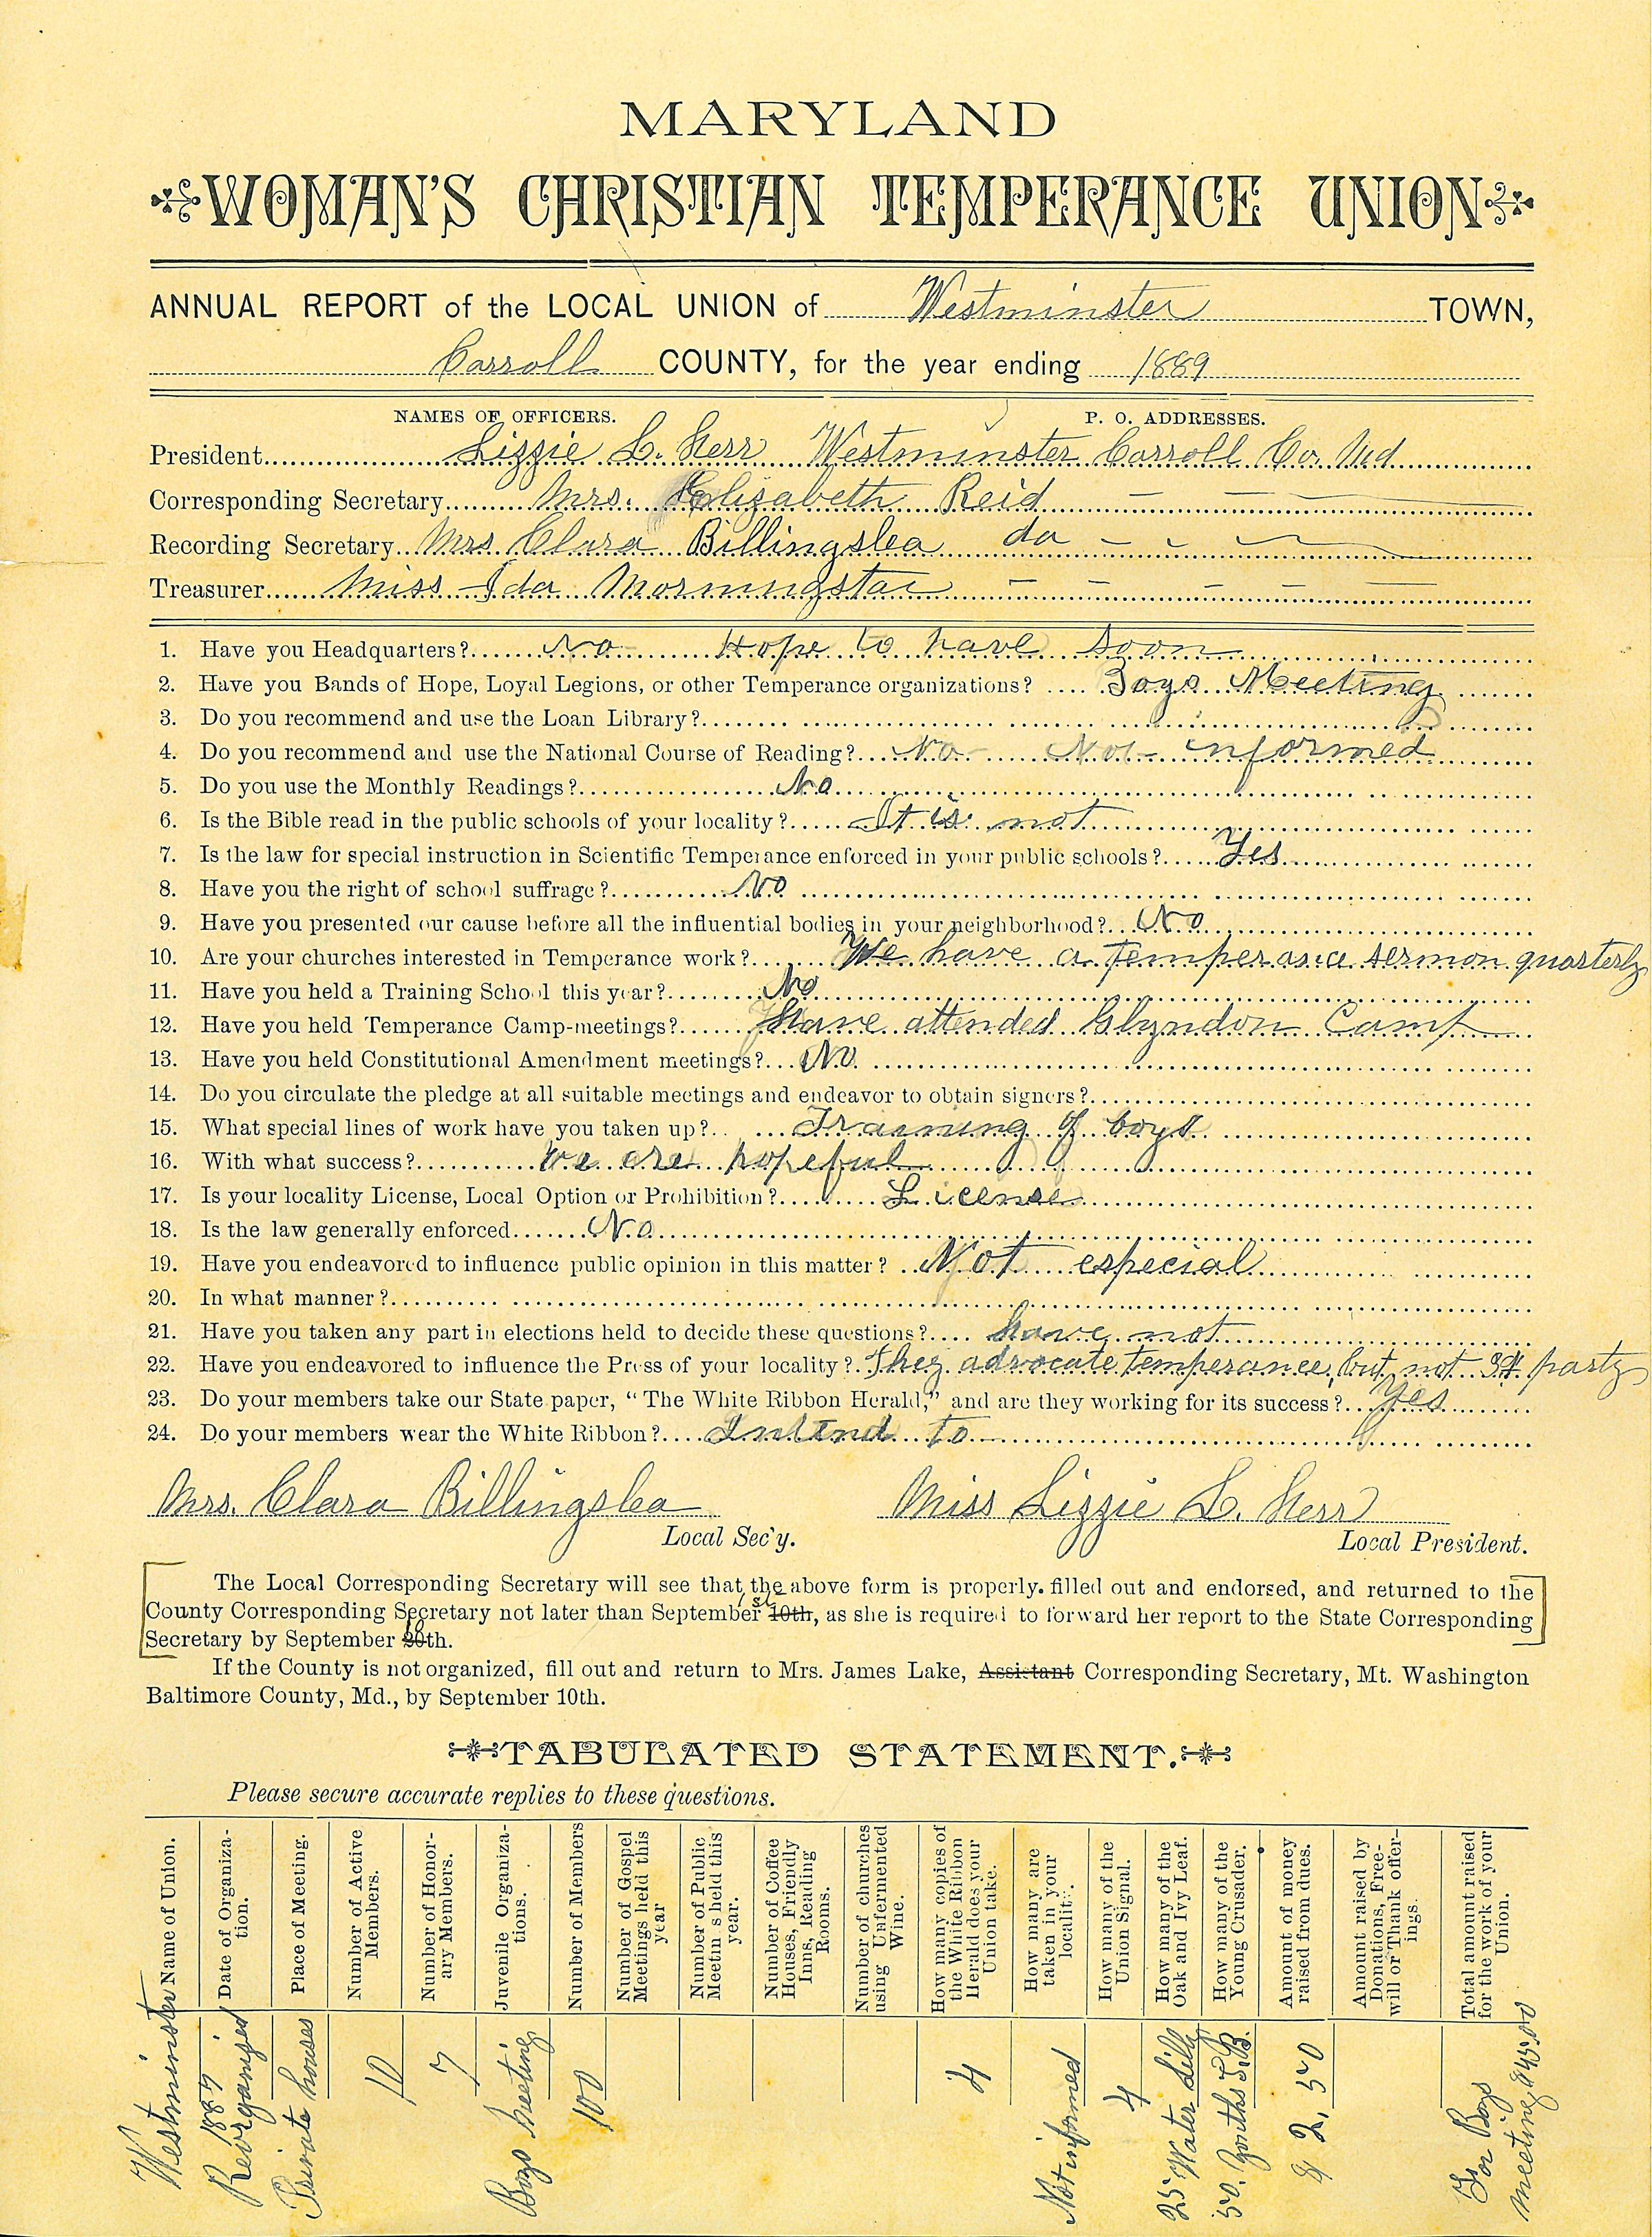 MARYLAND
WOMAN'S CHRISTIAN TEMPERANCE UNION
ANNUAL REPORT of the LOCAL UNION of Westminster TOWN,
Carroll COUNTY, for the year ending 1889
NAMES OF OFFICERS. P. O. ADDRESSES.
President Lizzie L. Herr Westminster Carroll Co. Md
Corresponding Secretary Mrs. Elizabeth Reid
Recording Secretary Mrs Clara Billingslea do
Treasurer Miss Ida Morningstar
1. Have you Headquarters? No Hope to have soon
2. Have you Bands of Hope, Loyal Legions, or other Temperance organizations? Boys Meeting
3. Do you recommend and use the Loan Library?
4. Do you recommend and use the National Course of Reading? No Not informed
5. Do you use the Monthly Readings? No
6. Is the Bible read in the public schools of your locality? It is not
7. Is the law for special instruction in Scientific Temperance enforced in your public schools? Yes
8. Have you the right of school suffrage? No
9. Have you presented our cause before all the influential bodies in your neighborhood? No
10. Are your churches interested in Temperance work? We have a sermon quarterly
11. Have you held a Training School this year? No
12. Have you held Temperance Camp-meetings? Have attended Glyndon Camp
13. Have you held Constitutional Amendment meetings? No
14. Do you circulate the pledge at all suitable meetings and endeavor to obtain signers?
15. What special lines of work have you taken up? Training of boys
16. With what success? We are hopeful
17. Is your locality License, Local Option or Prohibition? License
18. Is the law generally enforced No
19. Have you endeavored to influence public opinion in this matter? Not especial
20. In what manner?
21. Have you taken any part in elections held to decide these questions? have not
22. Have you endeavored to influence the Press of your locality? They advocate temperance, but not 3d party
23. Do your members take our State paper, "The White Ribbon Herald," and are they working for its success? Yes
24. Do your members wear the White Ribbon? Intend to
Mrs. Clara Billingslea Miss Lizzie L. Herr
Local Sec'y. Local President.
The Local Corresponding Secretary will see that the above form is properly filled out and endorsed, and returned to the
County Corresponding Secretary not later than September 1st 10th, as she is required to forward her report to the State Corresponding
Secretary by September 10 20th.
If the County is not organized, fill out and return to Mrs. James Lake, Assistant Corresponding Secretary, Mt. Washington
Baltimore County, Md., by September 10th.
TABULATED STATEMENT.
Please secure accurate replies to these questions.
Name of Union.
Westminster
Date of Organiza-
tion.
1887
Reorganized
Place of Meeting.
Private houses
Number of Active
Members.
10
Number of Honor-
ary Members.
7
Juvenile Organiza-
tions.
Boys Meeting
Number of Members
100
Number of Gospel
Meetings held this
year
Number of Public
Meetin s held this
year.
Number of Coffee
Houses, Friendly
Inns, Reading
Rooms.
Number of churches
using Unfermented
Wine.
How many copies of
the White Ribbon
Herald does your
Union take.
4
How many are
taken in your
locality.
Not informed
How many of the
Union Signal.
4
How many of the
Oak and Ivy Leaf.
25 Water Lilly
How many of the
Young Crusader.
50. Youths T.B.
Amount of money
raised from dues.
$ 2.50
Amount raised by
Donations, Free-
will or Thank offer-
ings.
Total amount raised
for the work of your
Union.
For Boys
meeting $45.00